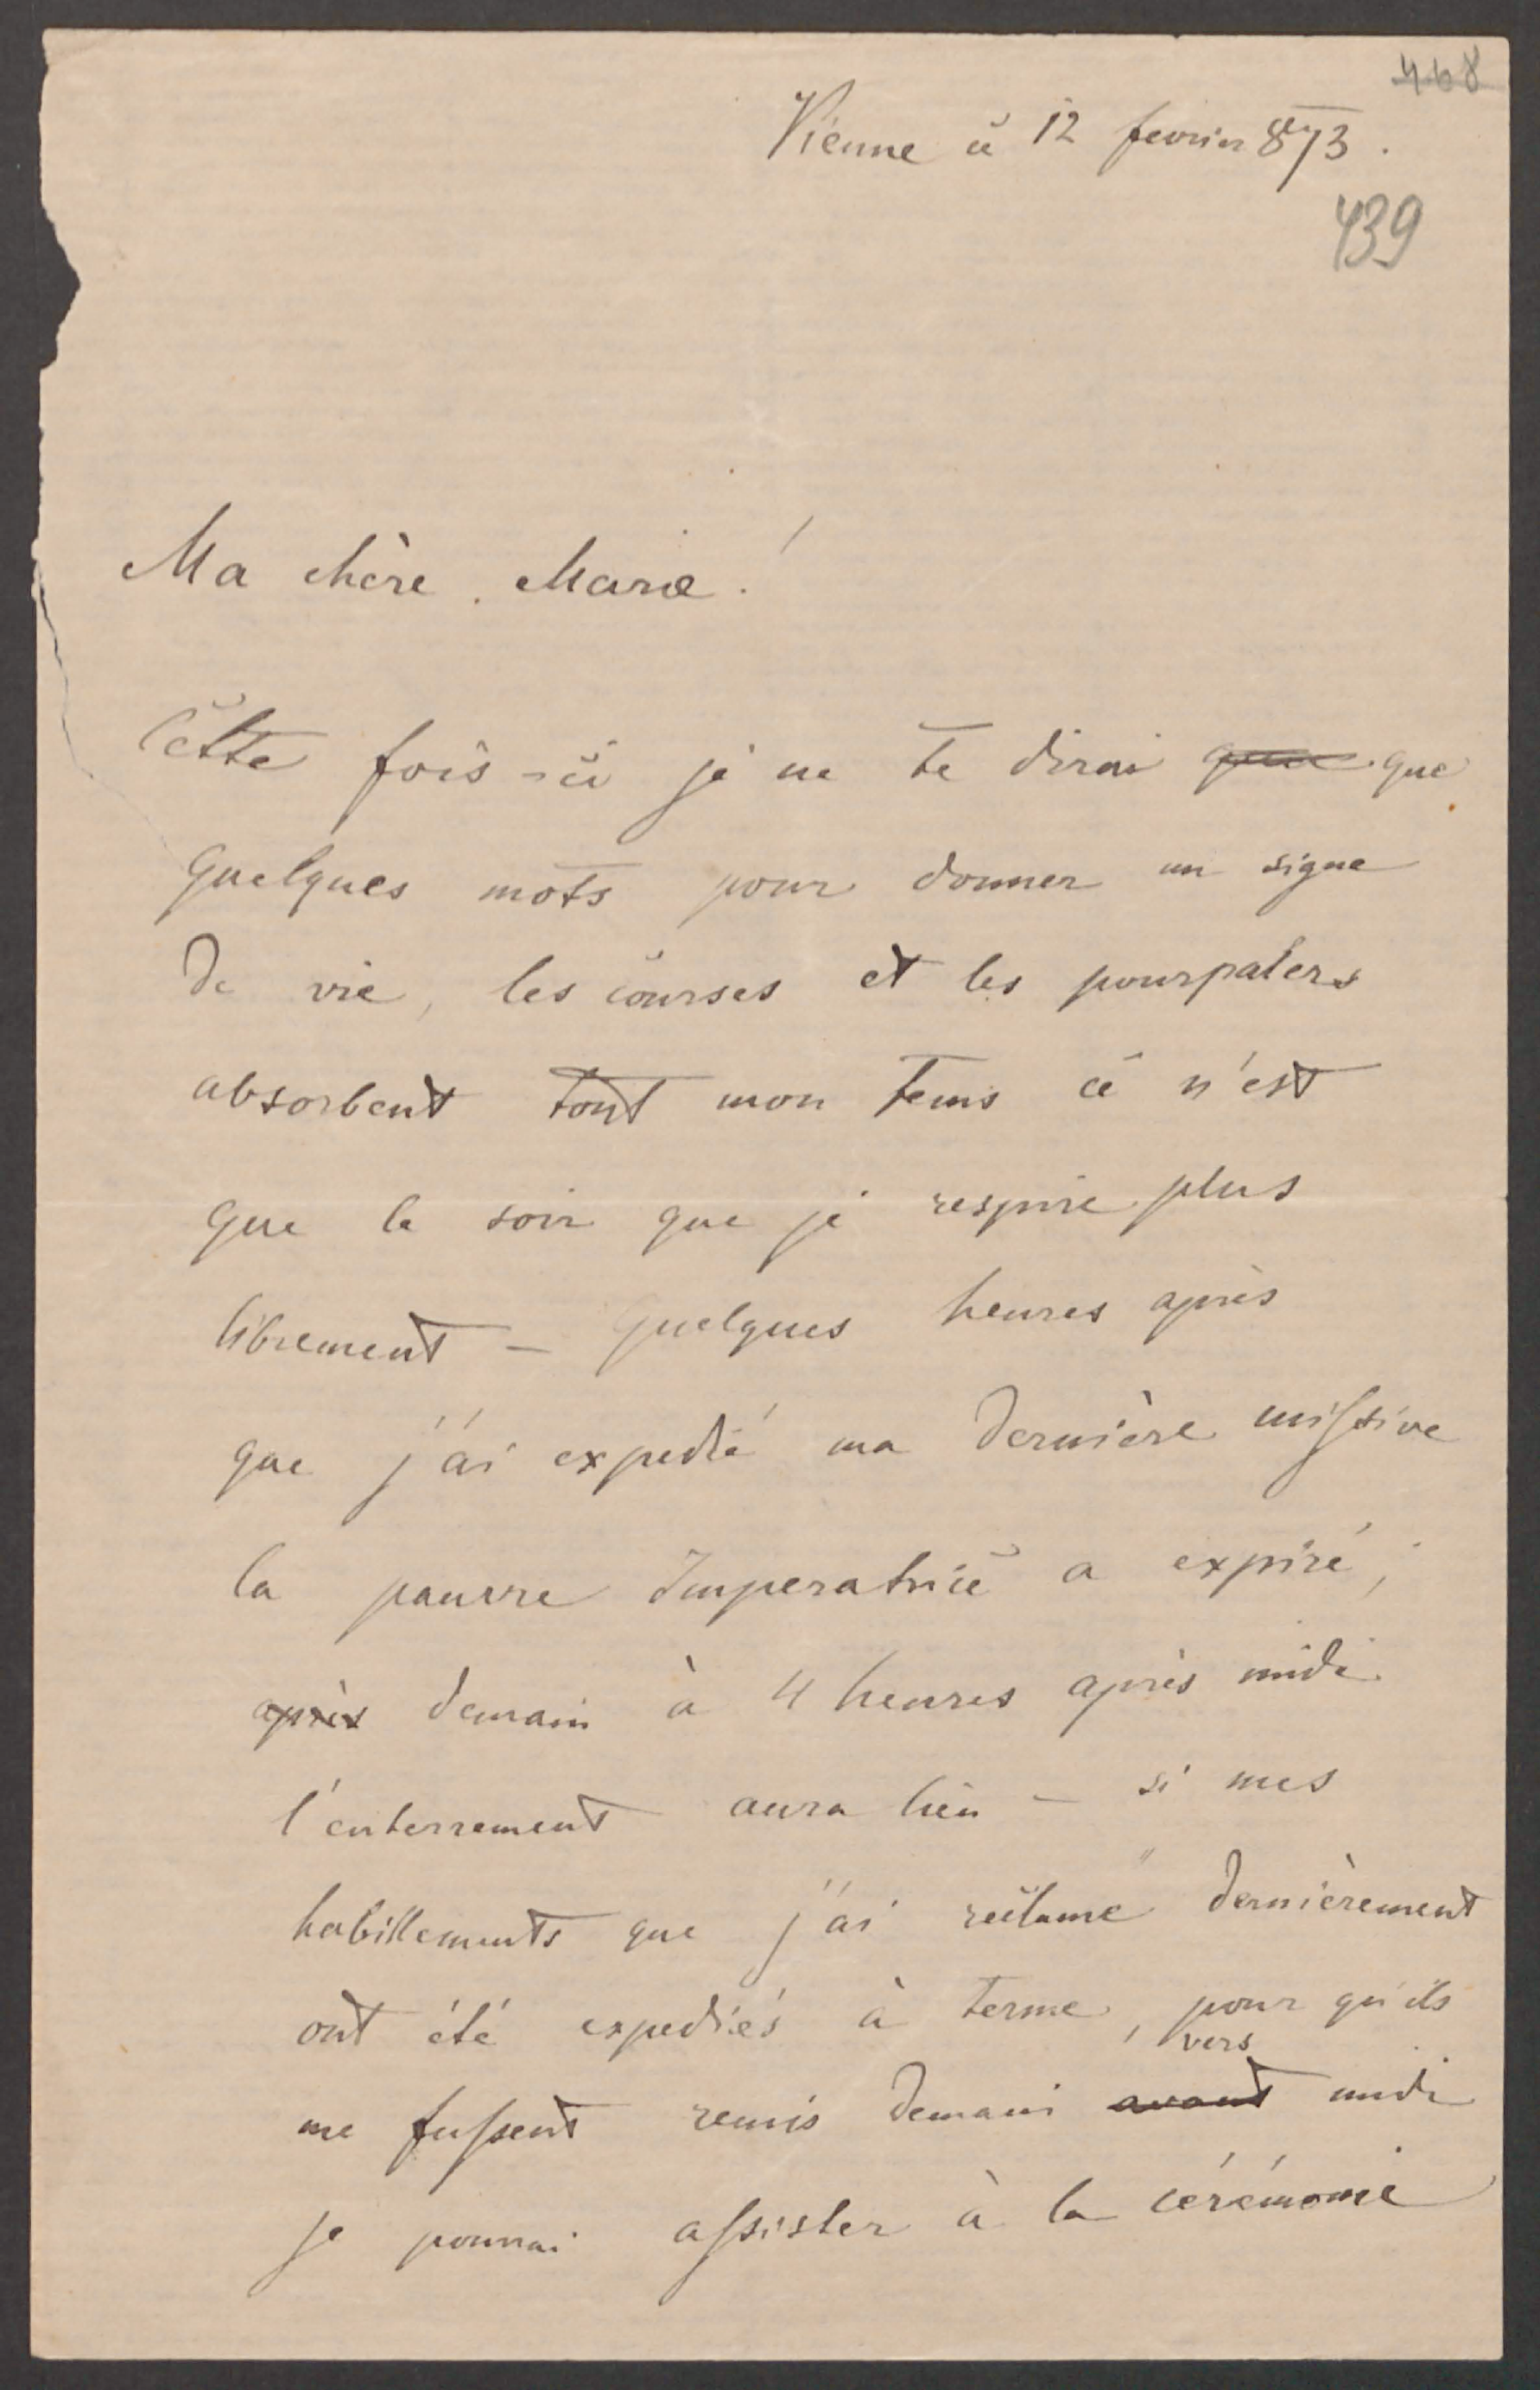 468
Vienne ce 12 fevrier 873.
439
Ma chère Marie!
Cette fois-ci je ne te dirai que que
quelques mots pour donner un signe
de vie, les courses et les pourpalers
absorbent tout mon tems ce n'est
que le soir que je respire plus
librement – quelques heures après
que j'ai expedié ma dernière missive
la pauvre Imperatrice a expiré;
après demain à 4 heures après midi
l'enterrement aura lieu – si mes
habillements que j'ai reclamé dernièrement
ont été expediés à terme, pour qu'ils
vers
me fussent remis demain avant midi
je pourrai assister à la cérémonie